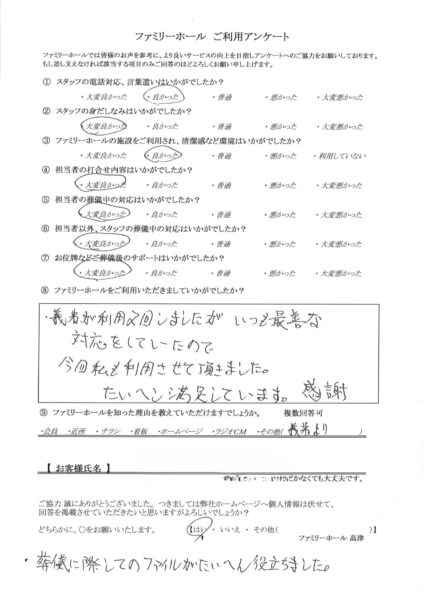 ファミリーホール ご利用アンケート
ファミリーホールでは皆様のお声を参考に、より良いサービスの向上を目指しアンケートへのご協力をお願いしております。
もし差し支えなければ該当する項目のみご回答のほどよろしくお願い申し上げます。
① スタッフの電話対応、言葉遣いはいかがでしたか?
・大変良かった ・良かった ・普通 ・悪かった ・大変悪かった
② スタッフの身だしなみはいかがでしたか?
・大変良かった ・良かった ・普通 ・悪かった ・大変悪かった
③ ファミリーホールの施設をご利用され、清潔感など環境はいかがでしたか?
・大変良かった ・良かった ・普通 ・悪かった ・利用していない
④ 担当者の打合せ内容はいかがでしたか?
・大変良かった ・良かった ・普通 ・悪かった ・大変悪かった
⑤ 担当者の葬儀中の対応はいかがでしたか?
・大変良かった ・良かった ・普通 ・悪かった ・大変悪かった
⑥ 担当者以外、スタッフの葬儀中の対応はいかがでしたか?
・大変良かった ・良かった ・普通 ・悪かった ・大変悪かった
⑦ お位牌などご葬儀後のサポートはいかがでしたか?
・大変良かった ・良かった ・普通 ・悪かった ・大変悪かった
⑧ ファミリーホールをご利用いただきましていかがでしたか?
・義弟が利用2回しましたが いつも最善な
対応をしていたので
今回私も利用させて頂きました。
たいへん満足しています。 感謝
⑨ ファミリーホールを知った理由を教えていただけますでしょうか。 複数回答可
・会員 ・近所 ・チラシ ・看板 ・ホームページ ・ラジオCM ・その他( 義弟より )
【 お客様氏名 】
どかなくても大丈夫です。
ご協力 誠にありがとうございました。つきましては弊社ホームページへ個人情報は伏せて、
回答を掲載させていただきたいと思いますがよろしいでしょうか?
どちらかに、○をお願いいたします。 【はい ・ いいえ ・ その他( )】
ファミリーホール 高津
・葬儀に際してのファイルがたいへん役立ちました。